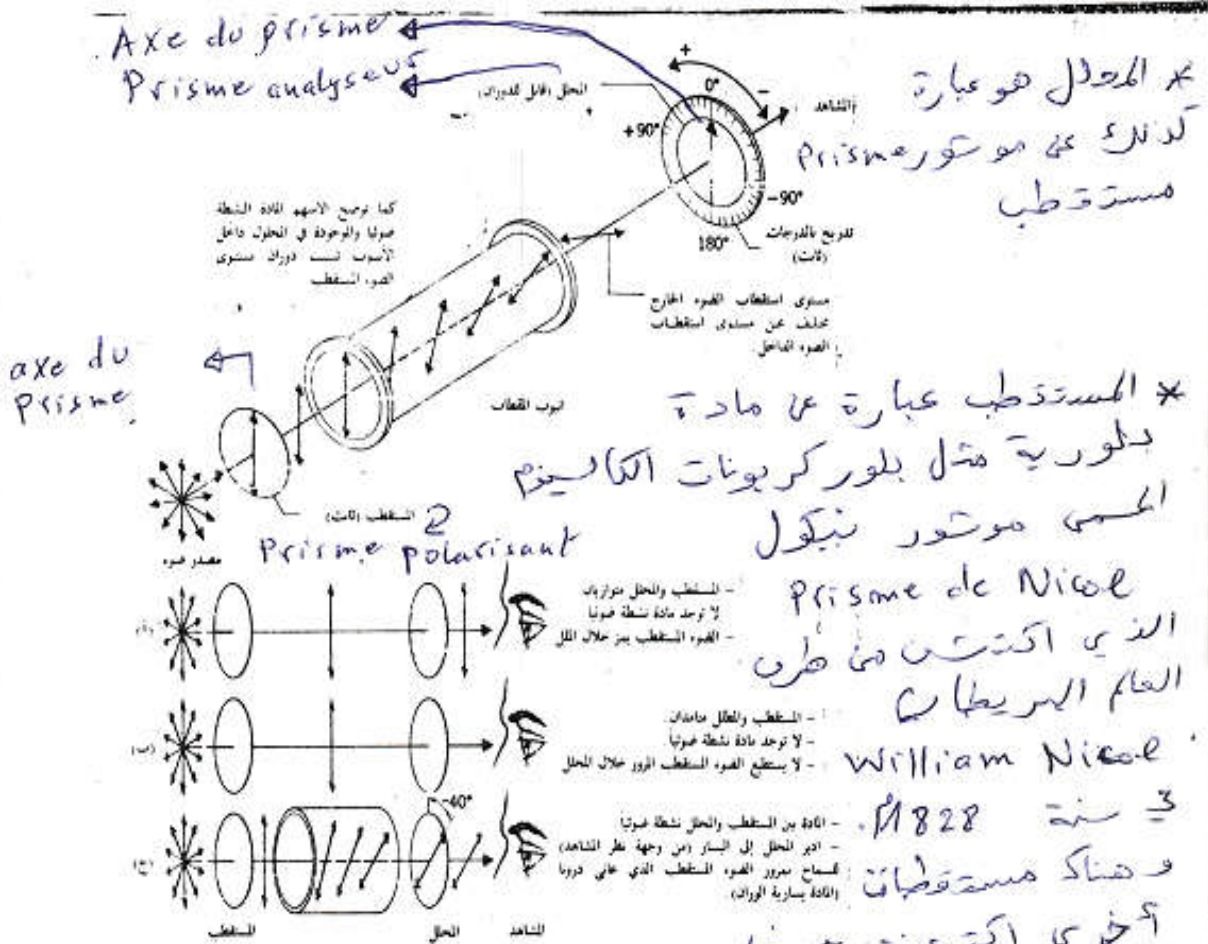 Axe du prisme
Prisme analyseur
المحلل (قابل للدوران)
+
0°
-
المشاهد
+90°
-90°
180°
تدريج بالدرجات
(ثابت)
* المحلل هو عبارة
كذلك عن موشور Prisme
مستقطب
كما توضح الاسهم المادة النشطة
ضوئيا والموجودة في المحلول داخل
الأنبوب تسبب دوران مستوى
الضوء المستقطب
مستوى استقطاب الضوء الخارج
يختلف عن مستوى استقطاب
الضوء الداخل.
axe du
Prisme
انبوب المقطاب
المستقطب (ثابت)
Prisme polarisant
مصدر ضوء
* المستقطب عبارة عن مادة
بلورية مثل بلور كربونات الكالسيوم
المسمى موشور نيكول
Prisme de Nicol
الذي اكتشف من طرف
العالم البريطاني
William Nicol
في سنة 1828.
و هناك مستقطبات
أخرى
(أ)
- المستقطب والمحلل متوازيان
لا توجد مادة نشطة ضوئيا
- الضوء المستقطب يمر خلال
(ب)
- المستقطب والمحلل متعامدان.
- لا توجد مادة نشطة ضوئيا.
- لا يستطيع الضوء المستقطب المرور خلال المحلل
(ج)
-40°
- المادة بين المستقطب والمحلل نشطة ضوئيا
- ادير المحلل إلى اليسار (من وجهة نظر المشاهد)
للسماح بمرور الضوء المستقطب الذي عانى
(المادة يسارية الدوران).
المستقطب
المحلل
المشاهد